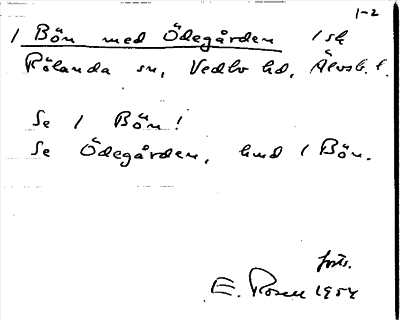 1-2
1 Bön med Ödegården 1 sk
Rölanda sn, Vedbo hd, Älvsb. l.
Se 1 Bön!
Se Ödegården, hmd 1 Bön.
forts.
E. Rosell 1954